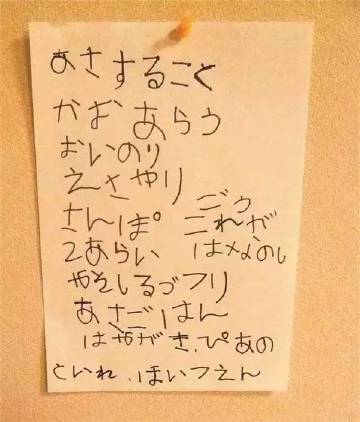 あさすること
かお あらう
おいのり
えさやり
さんぽ ごう
2あらい これが
はなのし
やさしるづフリ
あさごはん
はやがき、ぴあの
といれ、ほいつえん